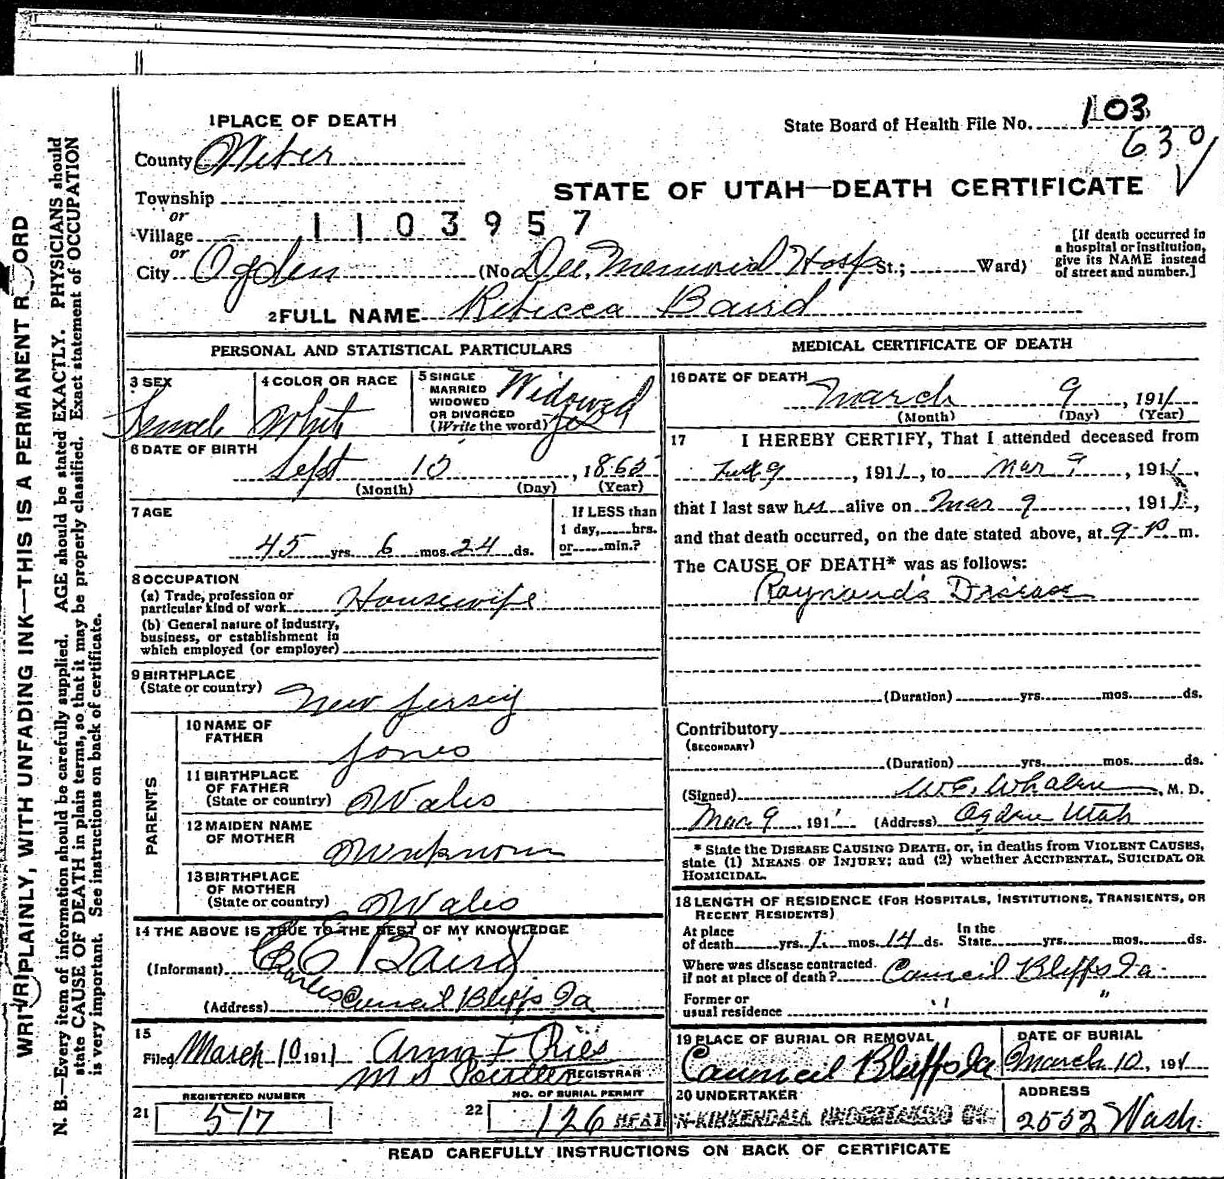 1 PLACE OF DEATH
State Board of Health File No. 103
630
County Weber
STATE OF UTAH—DEATH CERTIFICATE
Township
or
Village 1103957
or
City Ogden (No. Dee Memorial Hosp St.; Ward)
[If death occurred in
a hospital or institution,
give its NAME instead
of street and number.]
2 FULL NAME Rebecca Baird
PERSONAL AND STATISTICAL PARTICULARS
3 SEX Female
4 COLOR OR RACE White
5 SINGLE
MARRIED
WIDOWED
OR DIVORCED
(Write the word) Widowed
6 DATE OF BIRTH
Sept 15, 1865
(Month) (Day) (Year)
7 AGE
45 yrs. 6 mos. 24 ds.
If LESS than
1 day, hrs.
or min.?
8 OCCUPATION
(a) Trade, profession or
particular kind of work Housewife
(b) General nature of industry,
business, or establishment in
which employed (or employer)
9 BIRTHPLACE
(State or country) New Jersey
PARENTS
10 NAME OF
FATHER Jones
11 BIRTHPLACE
OF FATHER
(State or country) Wales
12 MAIDEN NAME
OF MOTHER Unknown
13 BIRTHPLACE
OF MOTHER
(State or country) Wales
14 THE ABOVE IS TRUE TO THE BEST OF MY KNOWLEDGE
(Informant) C E Baird
Charles
(Address) Council Bluffs Ia
15
Filed March 10 1911 Anna F. Ries
REGISTRAR
REGISTERED NUMBER
21 517
NO. OF BURIAL PERMIT
22 126
MEDICAL CERTIFICATE OF DEATH
16 DATE OF DEATH
March 9, 1911
(Month) (Day) (Year)
17 I HEREBY CERTIFY, That I attended deceased from
9, 1911, to Mar 9, 1911,
that I last saw her alive on Mar 9, 1911,
and that death occurred, on the date stated above, at 9 P m.
The CAUSE OF DEATH* was as follows:
Raynaud's Disease
(Duration) yrs. mos. ds.
Contributory
(SECONDARY)
(Duration) yrs. mos. ds.
(Signed) W.E. Whalen, M. D.
Mar 9 191 (Address) Ogden Utah
* State the DISEASE CAUSING DEATH, or, in deaths from VIOLENT CAUSES,
state (1) MEANS OF INJURY; and (2) whether ACCIDENTAL, SUICIDAL OR
HOMICIDAL.
18 LENGTH OF RESIDENCE (FOR HOSPITALS, INSTITUTIONS, TRANSIENTS, OR
RECENT RESIDENTS)
At place
of death yrs. 1 mos. 14 ds. In the
State yrs. mos. ds.
Where was disease contracted,
if not at place of death? Council Bluffs Ia.
Former or
usual residence " "
19 PLACE OF BURIAL OR REMOVAL
Council Bluffs Ia
DATE OF BURIAL
March 10, 191
20 UNDERTAKER
N-KIRKENDALL UNDERTAKING CO.
ADDRESS
2552 Wash.
READ CAREFULLY INSTRUCTIONS ON BACK OF CERTIFICATE
WRITE PLAINLY, WITH UNFADING INK—THIS IS A PERMANENT RECORD
N. B.—Every item of information should be carefully supplied. AGE should be stated EXACTLY. PHYSICIANS should
state CAUSE OF DEATH in plain terms, so that it may be properly classified. Exact statement of OCCUPATION
is very important. See instructions on back of certificate.